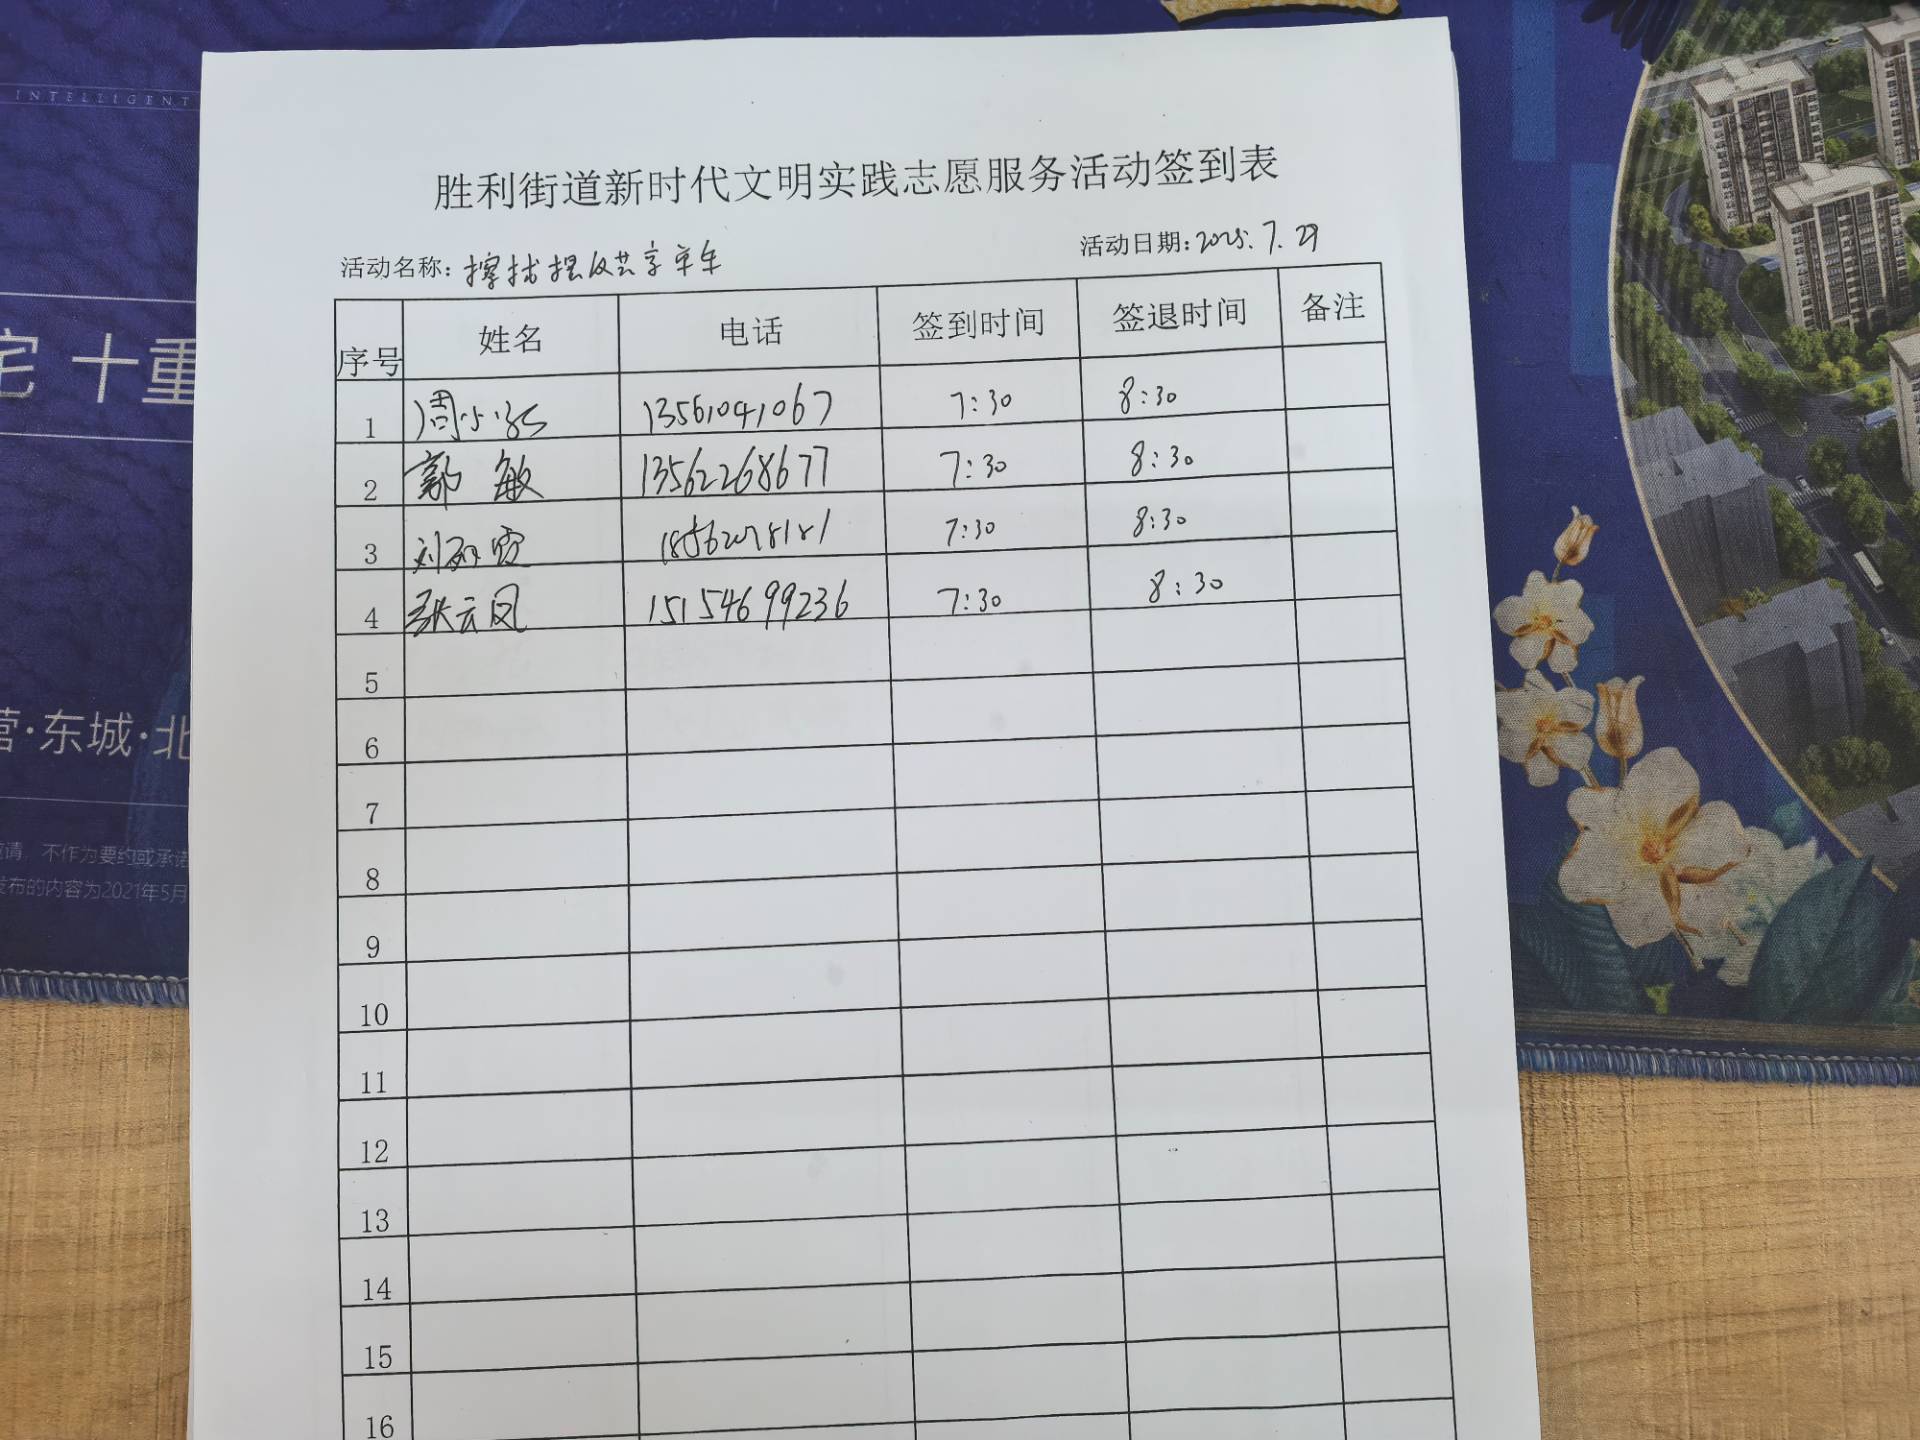 INTELLIGENT
宅 十重
营·东城·北
邀请，不作为要约或承诺
发布的内容为2021年5月
胜利街道新时代文明实践志愿服务活动签到表
活动名称：擦拭摆放共享单车 活动日期：2025.7.29
序号 姓名 电话 签到时间 签退时间 备注
1 周小 13561041067 7:30 8:30
2 郭敏 13562268677 7:30 8:30
3 刘 霞 7:30 8:30
4 张云凤 15154699236 7:30 8:30
5
6
7
8
9
10
11
12
13
14
15
16